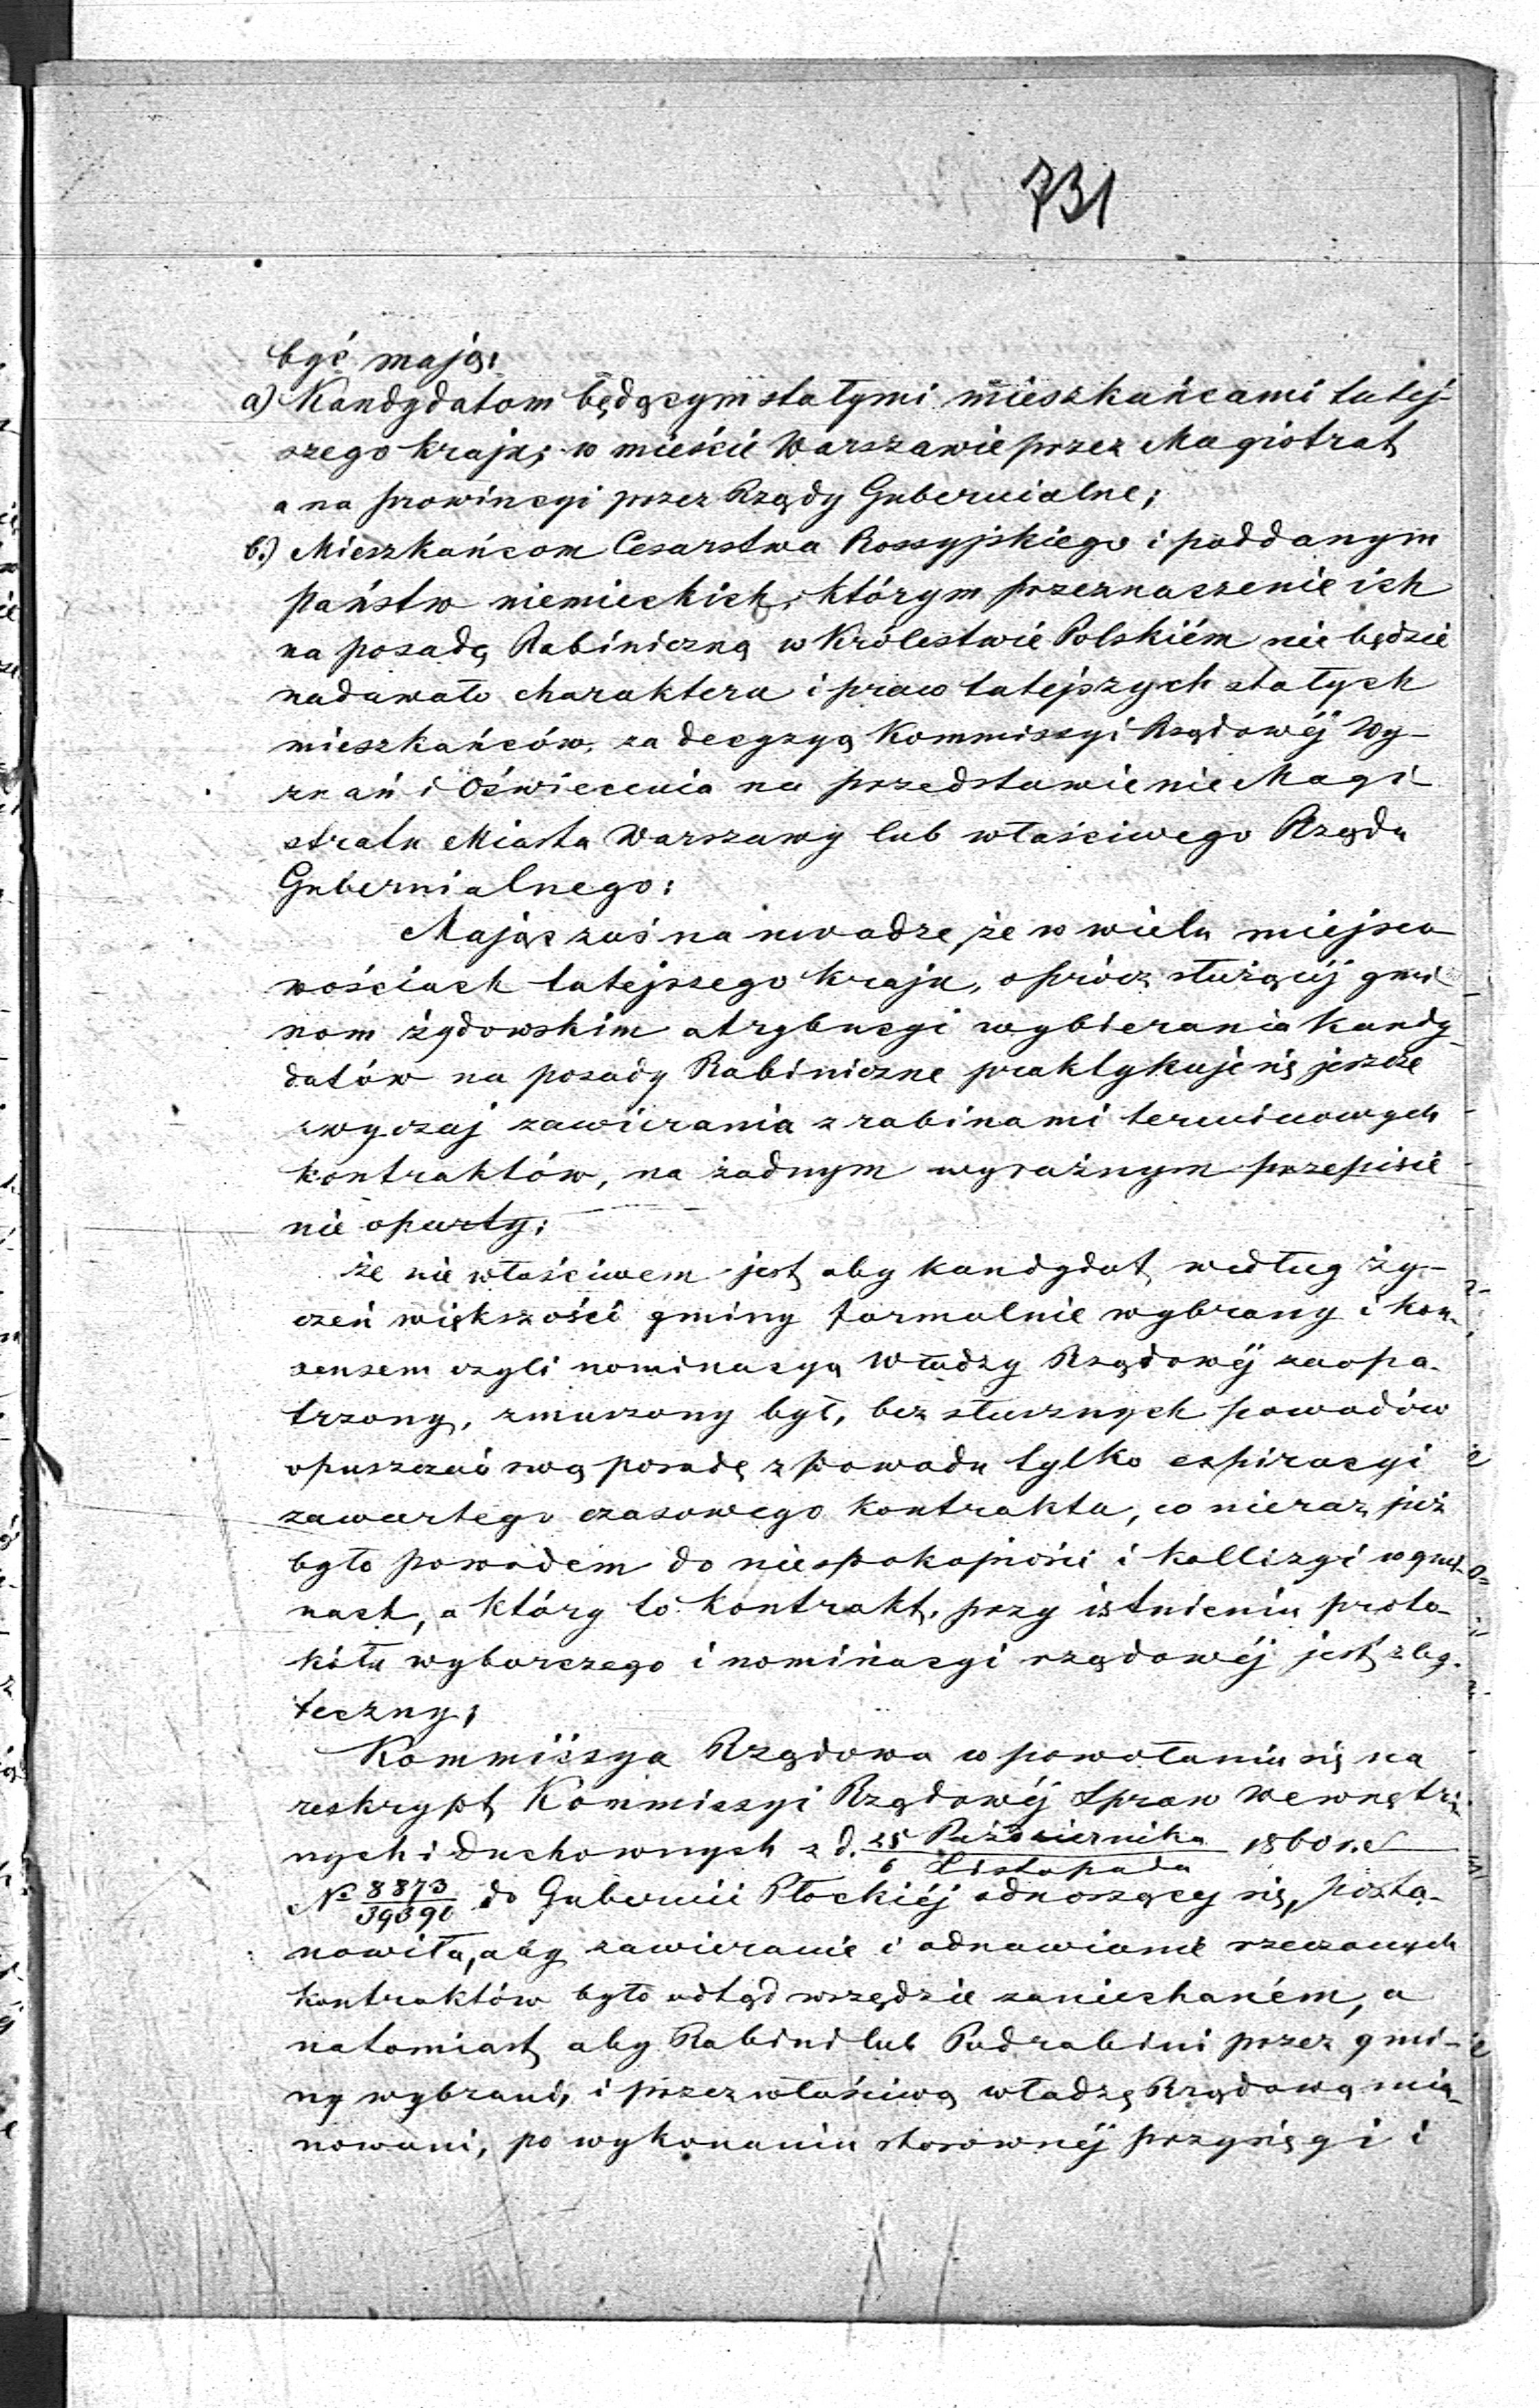 731
być mają:
a) Kandydatom będącym stałymi mieszkańcami tutej-
szego kraju; w mieście Warszawie przez Magistrat
a na prowincyi przez Rządy Gubernialne;
b.) Mieszkańcom Cesarstwa Rossyjskiego i poddanym
państw niemieckich, którym przeznaczenie ich
na posadę Rabiniczną w Królestwie Polskiém nie będzie
nadawało charakteru i praw tutejszych stałych
mieszkańców, za decyzyą Kommissyi Rządowéj Wy-
znań i Oświecenia na przedstawienie Magi-
stratu Miasta Warszawy lub właściwego Rządu
Gubernialnego:
Mając zaś na uwadze, że w wielu miejsco-
wościach tutejszego kraju, oprócz służącéj gmi-
nom żydowskim atrybucyi wybierania kandy-
datów na posady Rabiniczne praktykuje się jeszcze
zwyczaj zawierania z rabinami terminowych
kontraktów, na żadnym wyraźnym przepisie
nie oparty;
że nie właściwem jest aby kandydat według ży-
czeń większości gminy formalnie wybrany i kon-
sensem czyli nominacyą Władzy Rządowéj zaopa-
trzony, zmuszony był, bez słusznych powodów
opuszczać swą posadę z powodu tylko expiracyi
zawartego czasowego kontraktu, co nieraz już
było powodem do niespokojności i kollizyi w gmi-
nach, a który to kontrakt, przy istnieniu proto-
kółu wyborczego i nominacyi rządowéj jest zby-
teczny;
Kommissya Rządowa w powołaniu się na
reskrypt Kommissyi Rządowéj Spraw Wewnętrz-
nych i Duchownych z d. 25 Października / 6 Listopada 1860 r.
№ 8873/39390 do Gubernii Płockiéj odnoszący się, posta-
nowiła, aby zawieranie i odnawianie rzeczonych
kontraktów było odtąd wszędzie zaniechaném, a
natomiast aby Rabini lub Podrabini przez gmi-
ny wybrani, i przez właściwą władzę Rządową mia-
nowani, po wykonaniu stosownéj przysięgi i